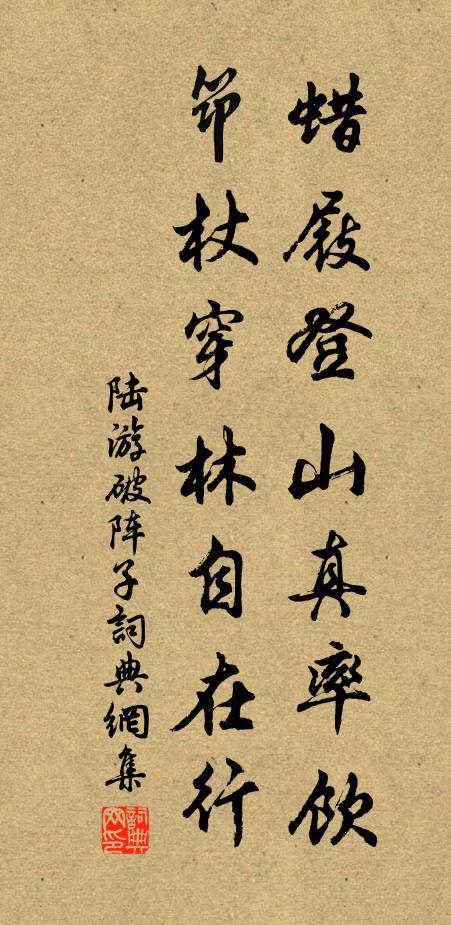 蜡屐登山真率饮
筇杖穿林自在行
陆游破阵子詞典網集
詞典網印